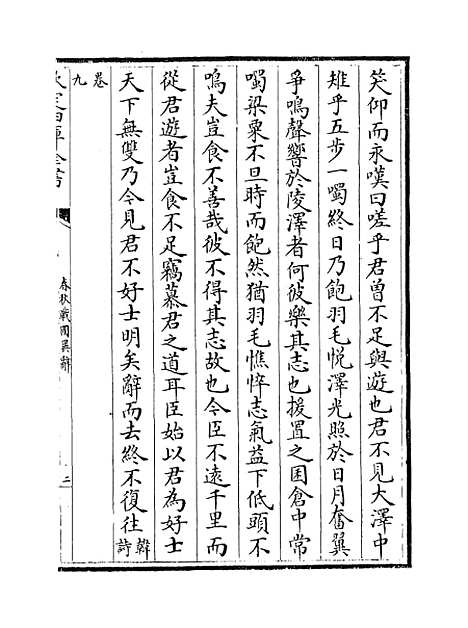 笑仰而永嘆曰嗟乎君曽不足與遊也君不見大澤中
雉乎五步一噣終日乃飽羽毛悅澤光照於日月奮翼
爭鳴聲響於陵澤者何彼樂其志也援置之囷倉中常
噣梁粟不旦時而飽然猶羽毛憔悴志氣益下低頭不
鳴夫豈食不善哉彼不得其志故也今臣不逺千里而
從君遊者豈食不足竊慕君之道耳臣始以君為好士
天下無雙乃今見君不好士明矣辭而去終不復往 韓詩
卷九
欽定四庫全書
春秋戰國異辭
二